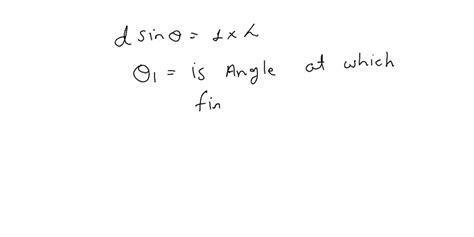 d sin θ = 1 × λ
θ₁ = is Angle at which
fin